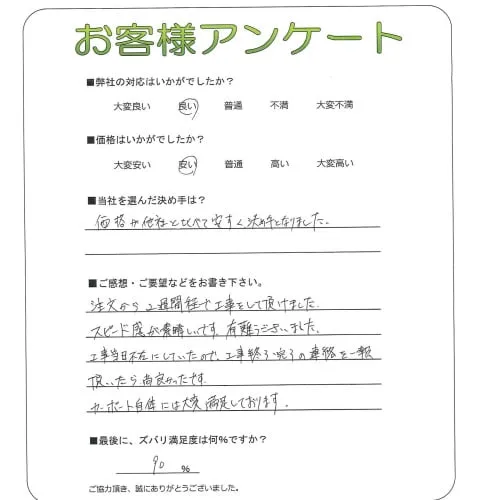 お客様アンケート
■弊社の対応はいかがでしたか？
大変良い 良い 普通 不満 大変不満
■価格はいかがでしたか？
大変安い 安い 普通 高い 大変高い
■当社を選んだ決め手は？
価格が他社と比べて安すく決め手となりました。
■ご感想・ご要望などをお書き下さい。
注文から2週間程で工事をして頂けました。
スピード感が素晴しいです。有難うございました。
工事当日不在にしていたので、工事終了完了の連絡を一報
頂いたら尚良かったです。
カーポート自体には大変満足しております。
■最後に、ズバリ満足度は何%ですか？
90 %
ご協力頂き、誠にありがとうございました。